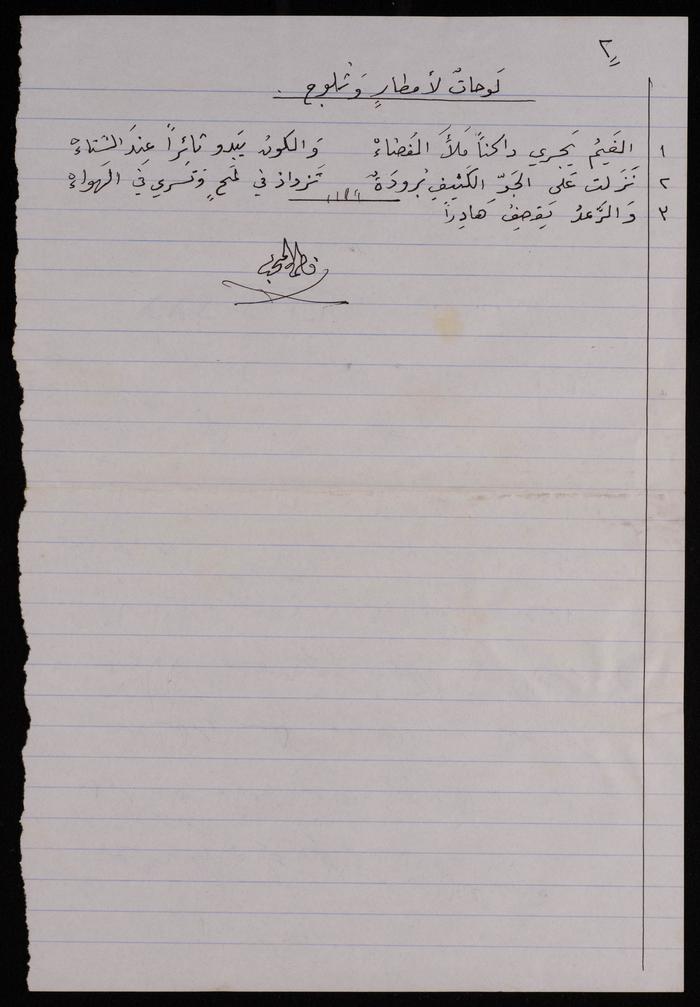 ٢
لَوحاتٌ لأمطارٍ وَثلوج .
١ الغَيمُ يَجري داكناً مَلأَ الفَضاءْ وَالكونُ يَبدو ثائِراً عِندَ الشتاءْ
٢ نَزَلت عَلى الجَوِّ الكَثيفِ بُرودَةٌ تَزدادُ في لَمحٍ وَتَسري في الهَواءْ
٣ وَالرَّعدُ يَقصِفُ هَادِراً